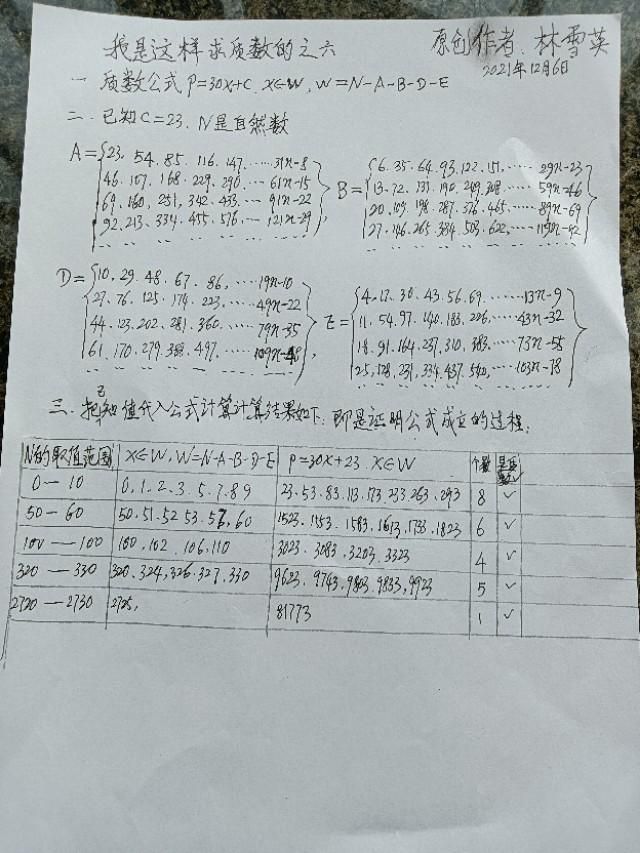 我是这样求质数的之六
原创作者、林雪英
2021年12月6日
一 质数公式 P=30X+C、X∈W、W=N-A-B-D-E
二、已知C=23、N是自然数
A={23、54、85、116、147、……31n-8
46、107、168、229、290、…61n-15
69、160、251、342、433、…91n-22
92、213、334、455、576、…121n-29
B={6、35、64、93、122、151、……29n-23
13、72、131、190、249、308、……59n-46
20、109、198、287、376、465、……89n-69
27、146、265、384、503、622、……119n-92
D={10、29、48、67、86、……19n-10
27、76、125、174、223、……49n-22
44、123、202、281、360、……79n-35
61、170、279、388、497、……109n-48
E={4、17、30、43、56、69、……13n-9
11、54、97、140、183、226、……43n-32
18、91、164、237、310、383、……73n-55
25、128、231、334、437、540、……103n-78
三、把已知值代入公式计算计算结果如下、即是证明公式成立的过程:
N的取值范围 X∈W、W=N-A-B-D-E P=30X+23、X∈W 个数 是质数√
0—10 0、1、2、3、5、7、8、9 23、53、83、113、173、233、263、293 8 √
50—60 50、51、52、53、57、60 1523、1553、1583、1613、1733、1823 6 √
100—100 100、102、106、110 3023、3083、3203、3323 4 √
320—330 320、324、326、327、330 9623、9743、9803、9833、9923 5 √
2720—2730 2725、 81773 1 √